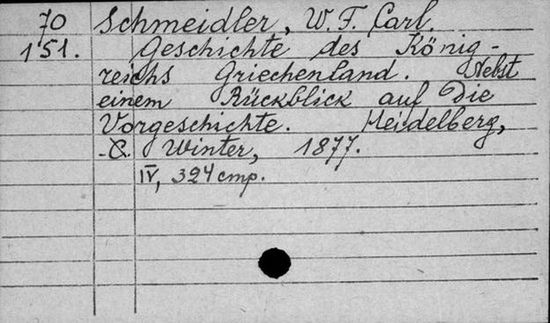 70 Schmeidler, W. F. Carl.
151. Geschichte des König-
reichs Griechenland. Nebst
einem Rückblick auf die
Vorgeschichte. Heidelberg,
C. Winter, 1877.
IV, 324 cmp.